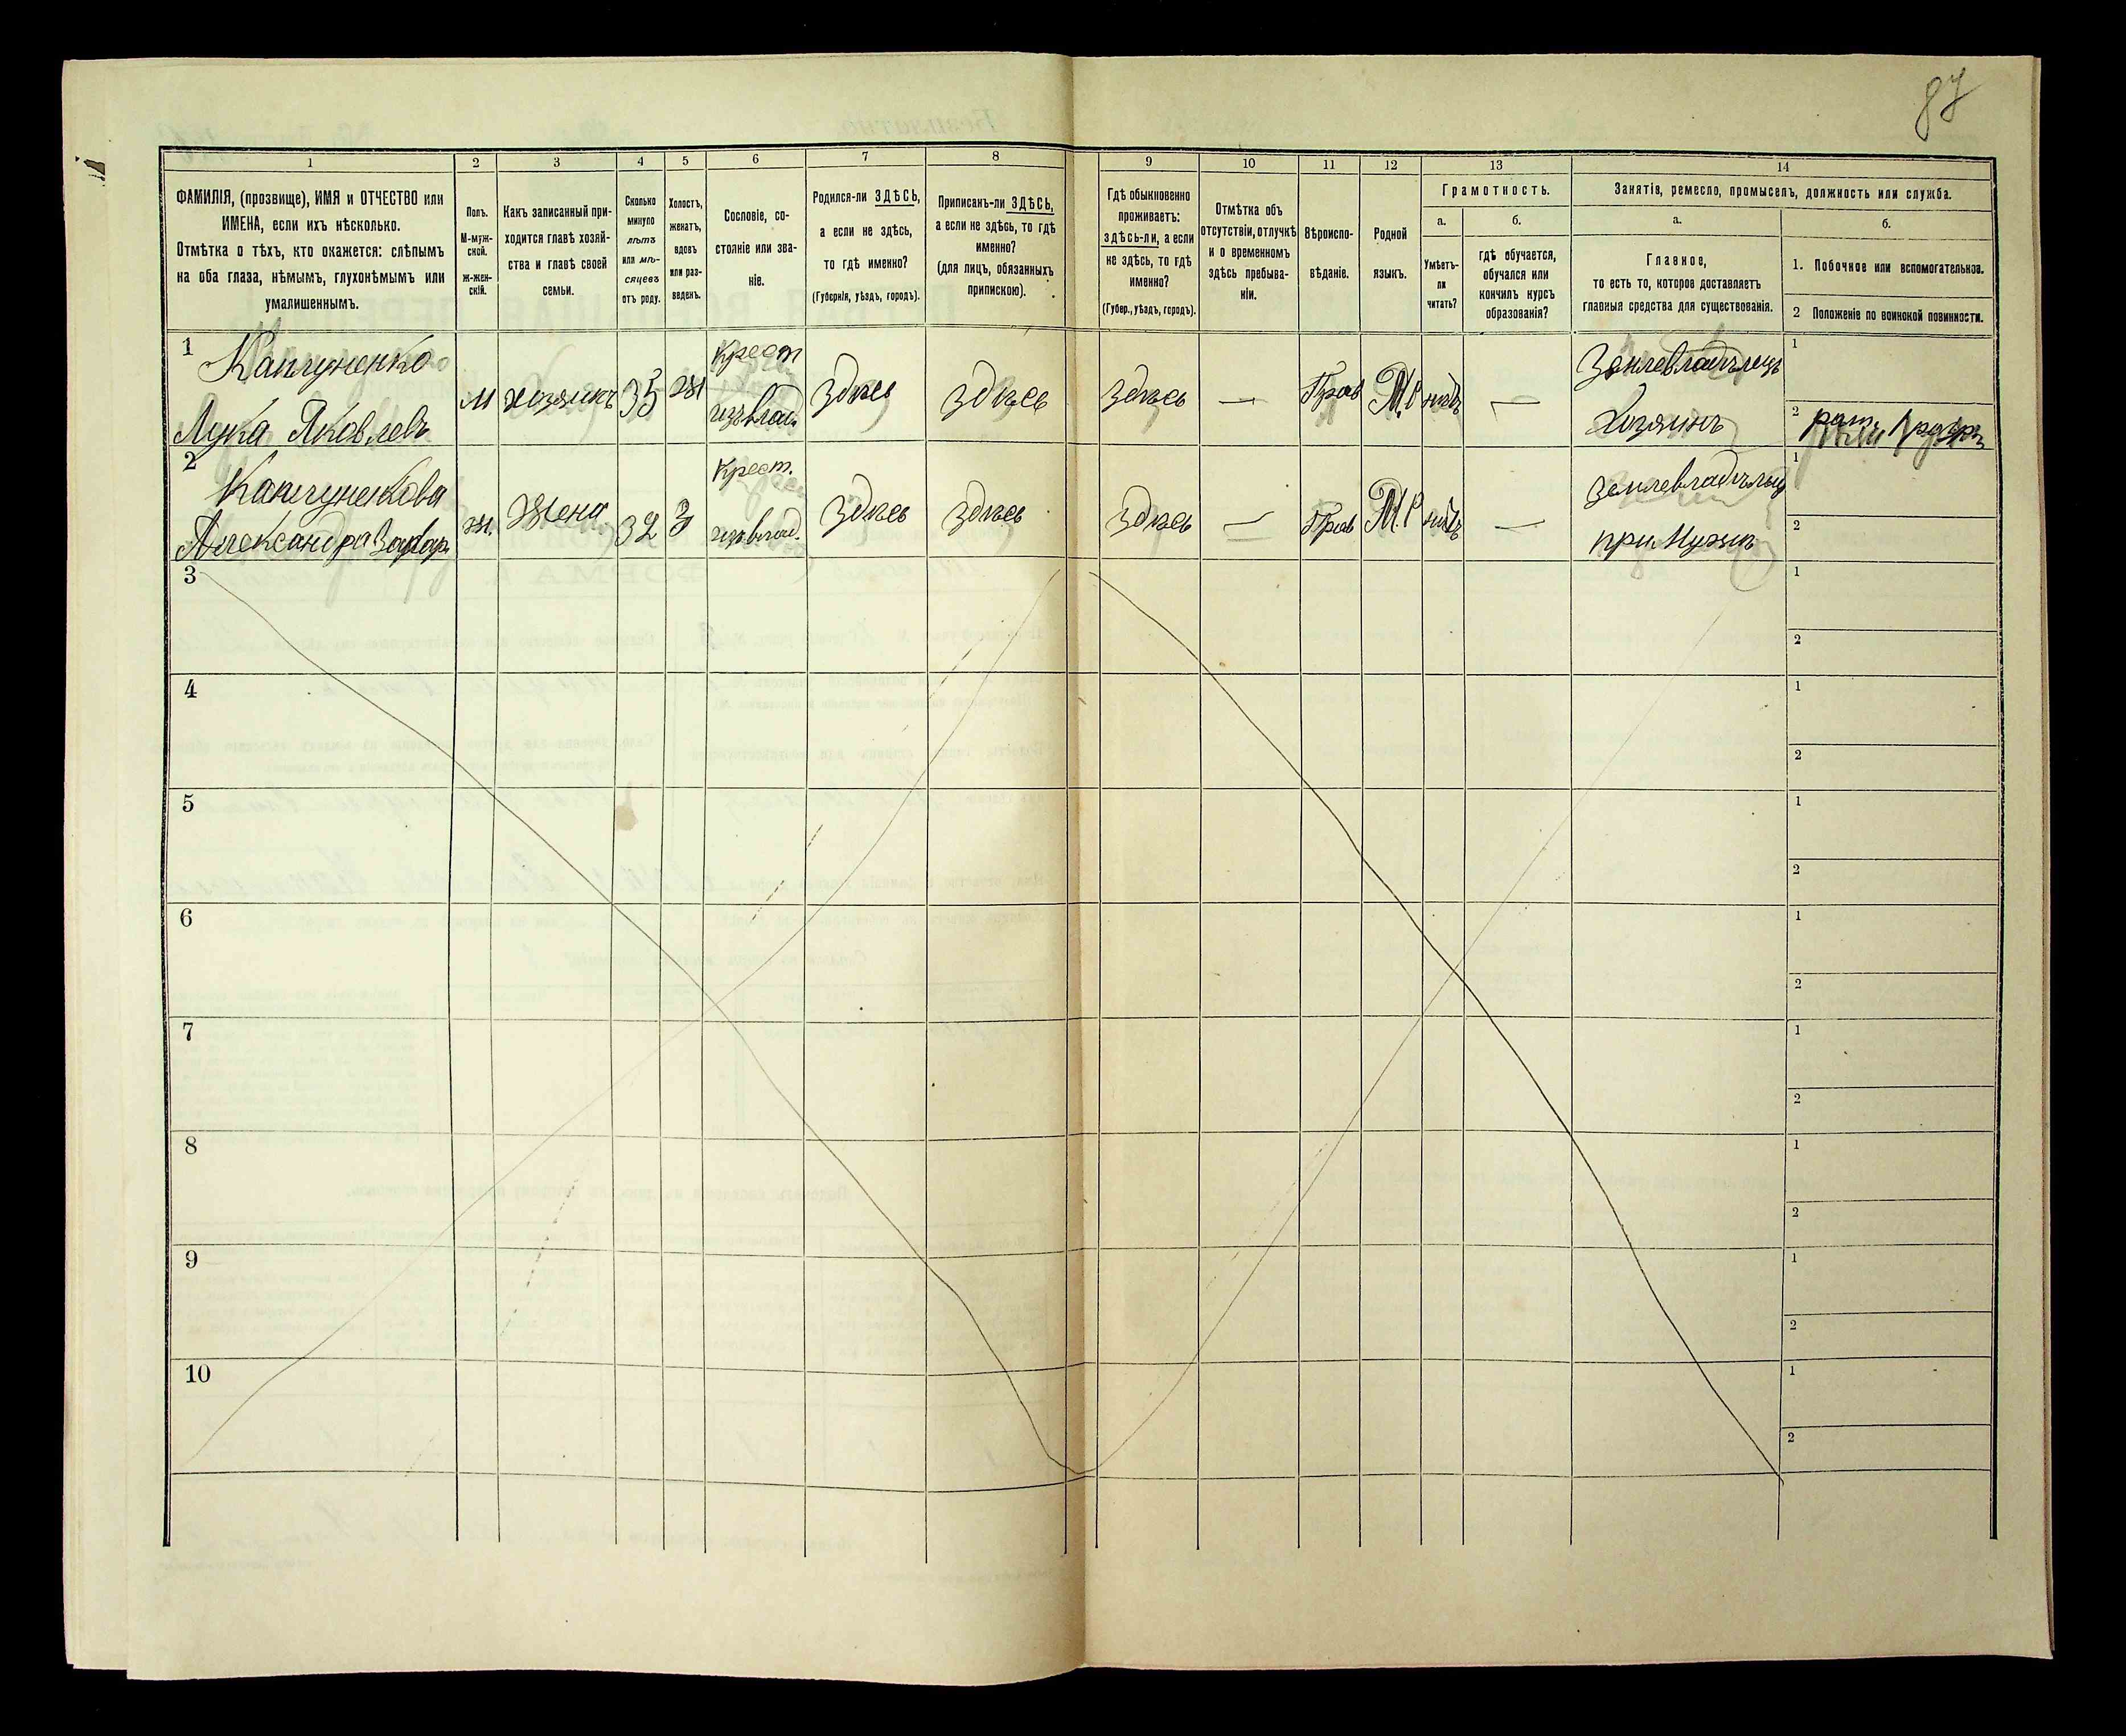 87
1 2 3 4 5 6 7 8 9 10 11 12 13 14
ФАМИЛІЯ, (прозвище), ИМЯ и ОТЧЕСТВО или
ИМЕНА, если ихъ нѣсколько.
Отмѣтка о тѣхъ, кто окажется: слѣпымъ
на оба глаза, нѣмымъ, глухонѣмымъ или
умалишеннымъ.
Полъ.
М-муж-
ской.
ж-жен-
скій.
Какъ записанный при-
ходится главѣ хозяй-
ства и главѣ своей
семьи.
Сколько
минуло
лѣтъ
или мѣ-
сяцевъ
отъ роду.
Холостъ,
женатъ,
вдовъ
или раз-
веденъ.
Сословіе, со-
стояніе или зва-
ніе.
Родился-ли ЗДѢСЬ,
а если не здѣсь,
то гдѣ именно?
(Губернія, уѣздъ, городъ).
Приписанъ-ли ЗДѢСЬ,
а если не здѣсь, то гдѣ
именно?
(для лицъ, обязанныхъ
припискою).
Гдѣ обыкновенно
проживаетъ:
здѣсь-ли, а если
не здѣсь, то гдѣ
именно?
(Губер., уѣздъ, городъ).
Отмѣтка объ
отсутствіи, отлучкѣ
и о временномъ
здѣсь пребыва-
ніи.
Вѣроиспо-
вѣданіе.
Родной
языкъ.
Грамотность.
а.
Умѣетъ-
ли
читать?
б.
гдѣ обучается,
обучался или
кончилъ курсъ
образованія?
Занятія, ремесло, промыселъ, должность или служба.
а.
Главное,
то есть то, которое доставляетъ
главныя средства для существованія.
б.
1. Побочное или вспомогательное.
2 Положеніе по воинской повинности.
1
Капчуненко
Лука Яковлевъ
м
хозяинъ
35
ж
крест
изъ влад.
здѣсь
здѣсь
здѣсь
—
Прав
М.Р
нѣтъ
—
Землевладѣлецъ
Хозяинъ
1
2
рат. 1 разр.
2
Капчуненкова
Александра Захар.
ж.
Жена
32
З
крест.
изъ влад.
здѣсь
здѣсь
здѣсь
—
Прав
М.Р
нѣтъ
—
землевладѣлец
при Мужѣ
1
2
3
1
2
4
1
2
5
1
2
6
1
2
7
1
2
8
1
2
9
1
2
10
1
2